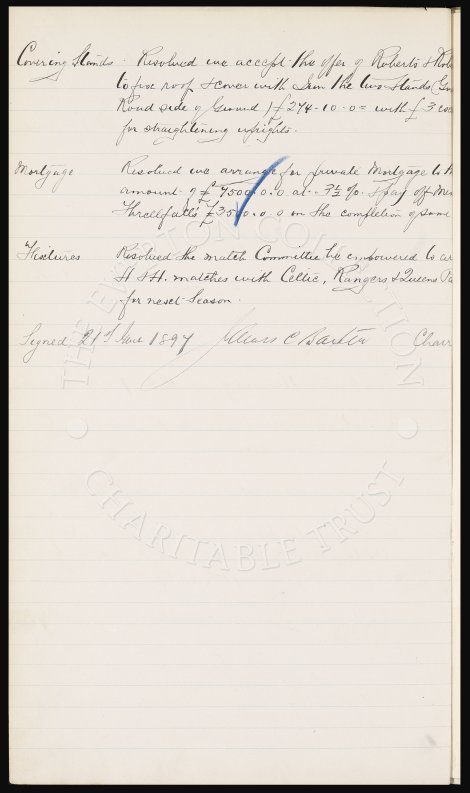 Covering Stands. Resolved we accept the offer of Roberts &
to fix roof & cover with Iron the two Stands
Road side of Ground) £274-10-0 = with £3
for straightening uprights.
Mortgage Resolved we arrange for private Mortgage to
amount of £7500.0.0 at 3½ % & pay off
Threlfalls £3500.0.0 on the completion of same
Fixtures Resolved the match Committee be empowered to
H & H. matches with Celtic, Rangers & Queens
for next Season.
Signed 21st June 1897 James C Baxter Chair
THE EVERTON COLLECTION
CHARITABLE TRUST